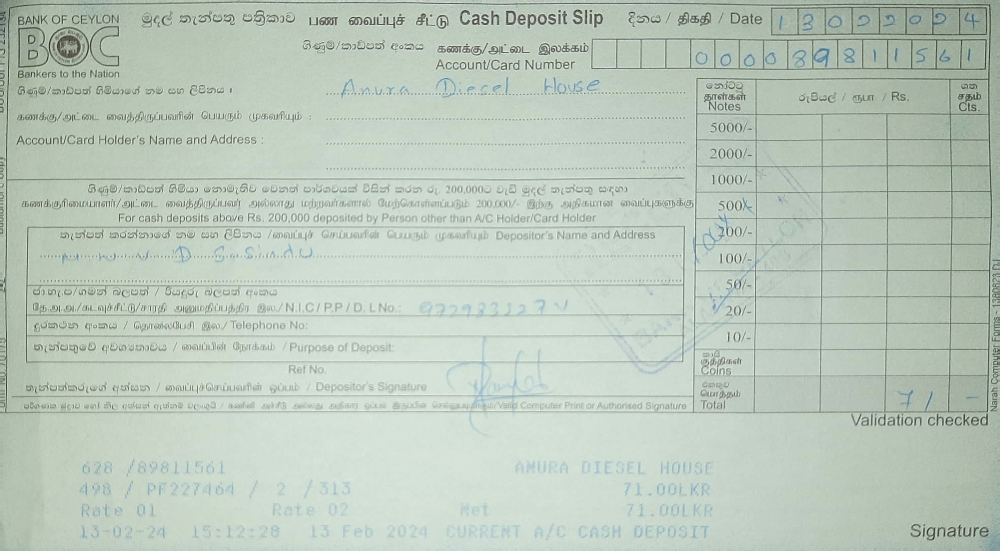 BANK OF CEYLON
BOC
Bankers to the Nation
මුදල් තැන්පතු පත්‍රිකාව பண வைப்புச் சீட்டு Cash Deposit Slip
දිනය / திகதி / Date 13022024
ගිණුම්/කාඩ්පත් අංකය கணக்கு/அட்டை இலக்கம்
Account/Card Number 000089811561
ගිණුම්/කාඩ්පත් හිමියාගේ නම සහ ලිපිනය : Anura Diesel House
கணக்கு/அட்டை வைத்திருப்பவரின் பெயரும் முகவரியும் :
Account/Card Holder's Name and Address :
නෝට්ටු தாள்கள் Notes
රුපියල් / ரூபா / Rs.
ශත சதம் Cts.
5000/-
2000/-
1000/-
500/-
200/-
100/-
50/-
20/-
10/-
කාසි குத்திகள் Coins
එකතුව மொத்தம் Total 71 -
ගිණුම්/කාඩ්පත් හිමියා නොමැතිව වෙනත් පාර්ශවයක් විසින් කරන රු. 200,000ට වැඩි මුදල් තැන්පතු සඳහා
கணக்குரிமையாளர்/அட்டை வைத்திருப்பவர் அல்லாது மற்றவர்களால் மேற்கொள்ளப்படும் 200,000/- இற்கு அதிகமான வைப்புகளுக்கு
For cash deposits above Rs. 200,000 deposited by Person other than A/C Holder/Card Holder
තැන්පත් කරන්නාගේ නම සහ ලිපිනය / வைப்புச் செய்பவரின் பெயரும் முகவரியும் Depositor's Name and Address
D S. Sindu
ජා.හැ.ප/ගමන් බලපත් / රියදුරු බලපත් අංකය
தே.அ.அ./கடவுச்சீட்டு/சாரதி அனுமதிப்பத்திர இல./N.I.C/P.P/D.L No.: 972983227V
දුරකථන අංකය / தொலைபேசி இல./ Telephone No:
තැන්පතුවේ අවශ්‍යතාවය / வைப்பின் நோக்கம் / Purpose of Deposit:
Ref No.
තැන්පත්කරුගේ අත්සන / வைப்புச்செய்பவரின் ஒப்பம் / Depositor's Signature
Valid Computer Print or Authorised Signature
Validation checked
628 /89811561 ANURA DIESEL HOUSE
498 / PF227464 / 2 /313 71.00LKR
Rate 01 Rate 02 Net 71.00LKR
13-02-24 15:12:28 13 Feb 2024 CURRENT A/C CASH DEPOSIT
Signature